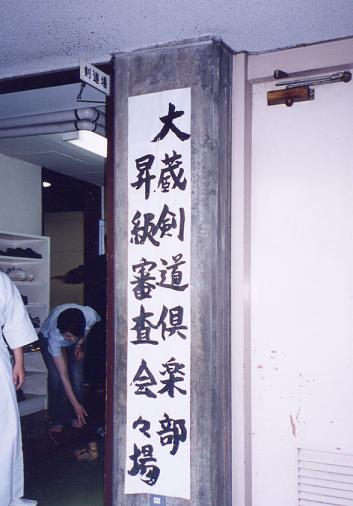 剣道場
大蔵剣道倶楽部
昇級審査会々場